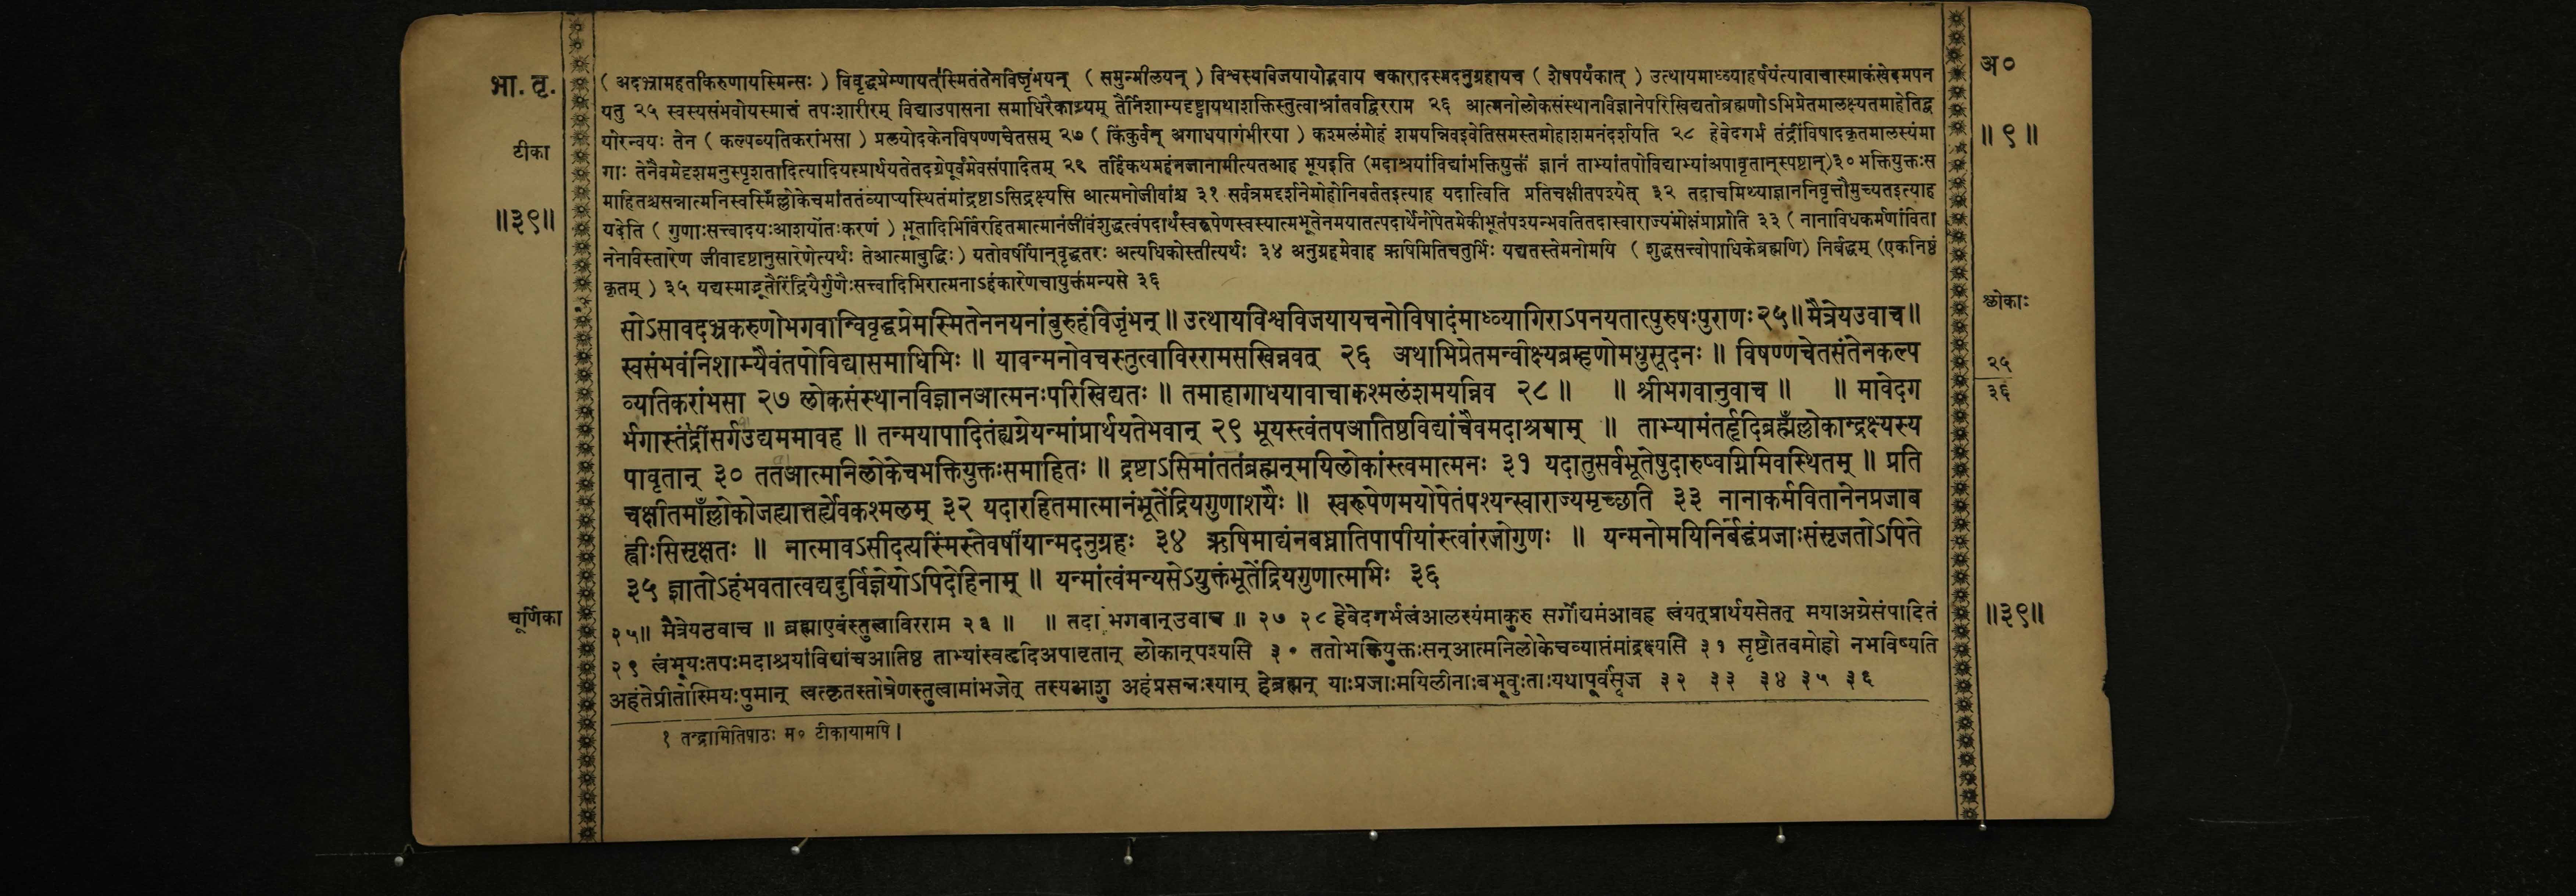 भा. तृ.
टीका
॥३९॥
चूर्णिका
(अदभ्रामहतीकरुणायस्मिन्सः) विवृद्धप्रेम्णायत्स्मितंतेनविजृंभयन् (समुन्मीलयन्) विश्वस्यविजयायोद्भवाय चकारादस्मदनुग्रहायच (शेषपर्यंकात्) उत्थायमाध्व्याहर्षयंत्यावाचास्माकंखेदमपन
यतु २५ स्वस्यसंभवोयस्मात्तं तपःशारीरम् विद्याउपासना समाधिरैकाग्र्यम् तैर्निशाम्यदृष्ट्वायथाशक्तिस्तुत्वाश्रांतवद्विरराम २६ आत्मनोलोकसंस्थानविज्ञानेपरिखिद्यतोब्रह्मणोऽभिप्रेतमालक्ष्यतमाहेतिद्व
योरन्वयः तेन (कल्पव्यतिकरांभसा) प्रलयोदकेनविषण्णचेतसम् २७ (किंकुर्वन् अगाधयागंभीरया) कश्मलंमोहं शमयन्निवइवेतिसमस्तमोहाशमनंदर्शयति २८ हेवेदगर्भ तंद्रींविषादकृतमालस्यंमा
गाः तेनैवमेदृशमनुस्पृशतादित्यादियत्प्रार्थयतेतदग्रेपूर्वमेवसंपादितम् २९ तर्हिकथमहंनजानामीत्यतआह भूयइति (मदाश्रयांविद्यांभक्तियुक्तं ज्ञानं ताभ्यांतपोविद्याभ्यांअपावृतान्स्पष्टान्)३० भक्तियुक्तःस
माहितश्चसन्नात्मनिस्वस्मिँल्लोकेचमांततंव्याप्यस्थितंमांद्रष्टाऽसिद्रक्ष्यसि आत्मनोजीवांश्च ३१ सर्वत्रमद्दर्शनेमोहोनिवर्ततइत्याह यदात्विति प्रतिचक्षीतपश्येत् ३२ तदाचमिथ्याज्ञाननिवृत्तौमुच्यतइत्याह
यदेति (गुणाःसत्त्वादयःआशयोंतःकरणं) भूतादिभिर्विरहितमात्मानंजीवंशुद्धत्वंपदार्थंस्वरूपेणस्वस्यात्मभूतेनमयातत्पदार्थेनोपेतमेकीभूतंपश्यन्भवतितदास्वाराज्यंमोक्षंप्राप्नोति ३३ (नानाविधकर्मणांविता
नेनविस्तारेण जीवादृष्टानुसारेणेत्यर्थः तेआत्माबुद्धिः) यतोवर्षीयान्वृद्धतरः अत्यधिकोस्तीत्यर्थः ३४ अनुग्रहमेवाह ऋषिमितिचतुर्भिः यद्यतस्तेमनोमयि (शुद्धसत्त्वोपाधिकेब्रह्मणि) निर्बद्धम् (एकनिष्ठं
कृतम्) ३५ यद्यस्माद्भूतैरिंद्रियैर्गुणैःसत्त्वादिभिरात्मनाऽहंकारेणचायुक्तंमन्यसे ३६
सोऽसावदभ्रकरुणोभगवान्विवृद्धप्रेमस्मितेननयनांबुरुहंविजृंभन् ॥ उत्थायविश्वविजयायचनोविषादंमाध्व्यागिराऽपनयतात्पुरुषःपुराणः २५॥ मैत्रेयउवाच॥
स्वसंभवंनिशाम्यैवंतपोविद्यासमाधिभिः ॥ यावन्मनोवचस्तुत्वाविररामसखिन्नवत् २६ अथाभिप्रेतमन्वीक्ष्यब्रम्हणोमधुसूदनः ॥ विषण्णचेतसंतेनकल्प
व्यतिकरांभसा २७ लोकसंस्थानविज्ञानआत्मनःपरिखिद्यतः ॥ तमाहागाधयावाचाकश्मलंशमयन्निव २८ ॥ ॥ श्रीभगवानुवाच ॥ ॥ मावेदग
र्भगास्तंद्रींसर्गउद्यममावह ॥ तन्मयापादितंह्यग्रेयन्मांप्रार्थयतेभवान् २९ भूयस्त्वंतपआतिष्ठविद्यांचैवमदाश्रयाम् ॥ ताभ्यामंतर्हृदिब्रह्मँल्लोकान्द्रक्ष्यस्य
पावृतान् ३० ततआत्मनिलोकेचभक्तियुक्तःसमाहितः ॥ द्रष्टाऽसिमांततंब्रह्मन्मयिलोकांस्त्वमात्मनः ३१ यदातुसर्वभूतेषुदारुष्वग्निमिवस्थितम् ॥ प्रति
चक्षीतमाँल्लोकोजह्यात्तर्ह्येवकश्मलम् ३२ यदारहितमात्मानंभूतेंद्रियगुणाशयैः ॥ स्वरूपेणमयोपेतंपश्यन्स्वाराज्यमृच्छति ३३ नानाकर्मवितानेनप्रजाब
ह्वीःसिसृक्षतः ॥ नात्मावऽसीदत्यस्मिंस्तेवर्षीयान्मदनुग्रहः ३४ ऋषिमाद्यंनबध्नातिपापीयांस्त्वांरजोगुणः ॥ यन्मनोमयिनिर्बद्धंप्रजाःसंसृजतोऽपिते
३५ ज्ञातोऽहंभवतात्वद्यदुर्विज्ञेयोऽपिदेहिनाम् ॥ यन्मांत्वंमन्यसेऽयुक्तंभूतेंद्रियगुणात्मभिः ३६
२५॥ मैत्रेयउवाच ॥ ब्रह्माएवंस्तुत्वाविरराम २६ ॥ ॥ तदा भगवान्उवाच ॥ २७ २८ हेवेदगर्भत्वंआलस्यंमाकुरु सर्गोद्यमंआवह त्वंयत्प्रार्थयसेतत् मयाअग्रेसंपादितं
२९ त्वंभूयःतपःमदाश्रयांविद्यांचआतिष्ठ ताभ्यांस्वहृदिअपावृतान् लोकान्पश्यसि ३० ततोभक्तियुक्तःसन्आत्मनिलोकेचव्याप्तंमांद्रक्ष्यसि ३१ सृष्टौतवमोहो नभविष्यति
अहंतेप्रीतोस्मियःपुमान् त्वत्कृतस्तोत्रेणस्तुत्वामांभजेत् तस्यआशु अहंप्रसन्नःस्याम् हेब्रह्मन् याःप्रजाःमयिलीनाःबभूवुःताःयथापूर्वंसृज ३२ ३३ ३४ ३५ ३६
१ तन्द्रामितिपाठः म० टीकायामपि।
अ०
॥९॥
श्लोकाः
२५
३६
॥३९॥